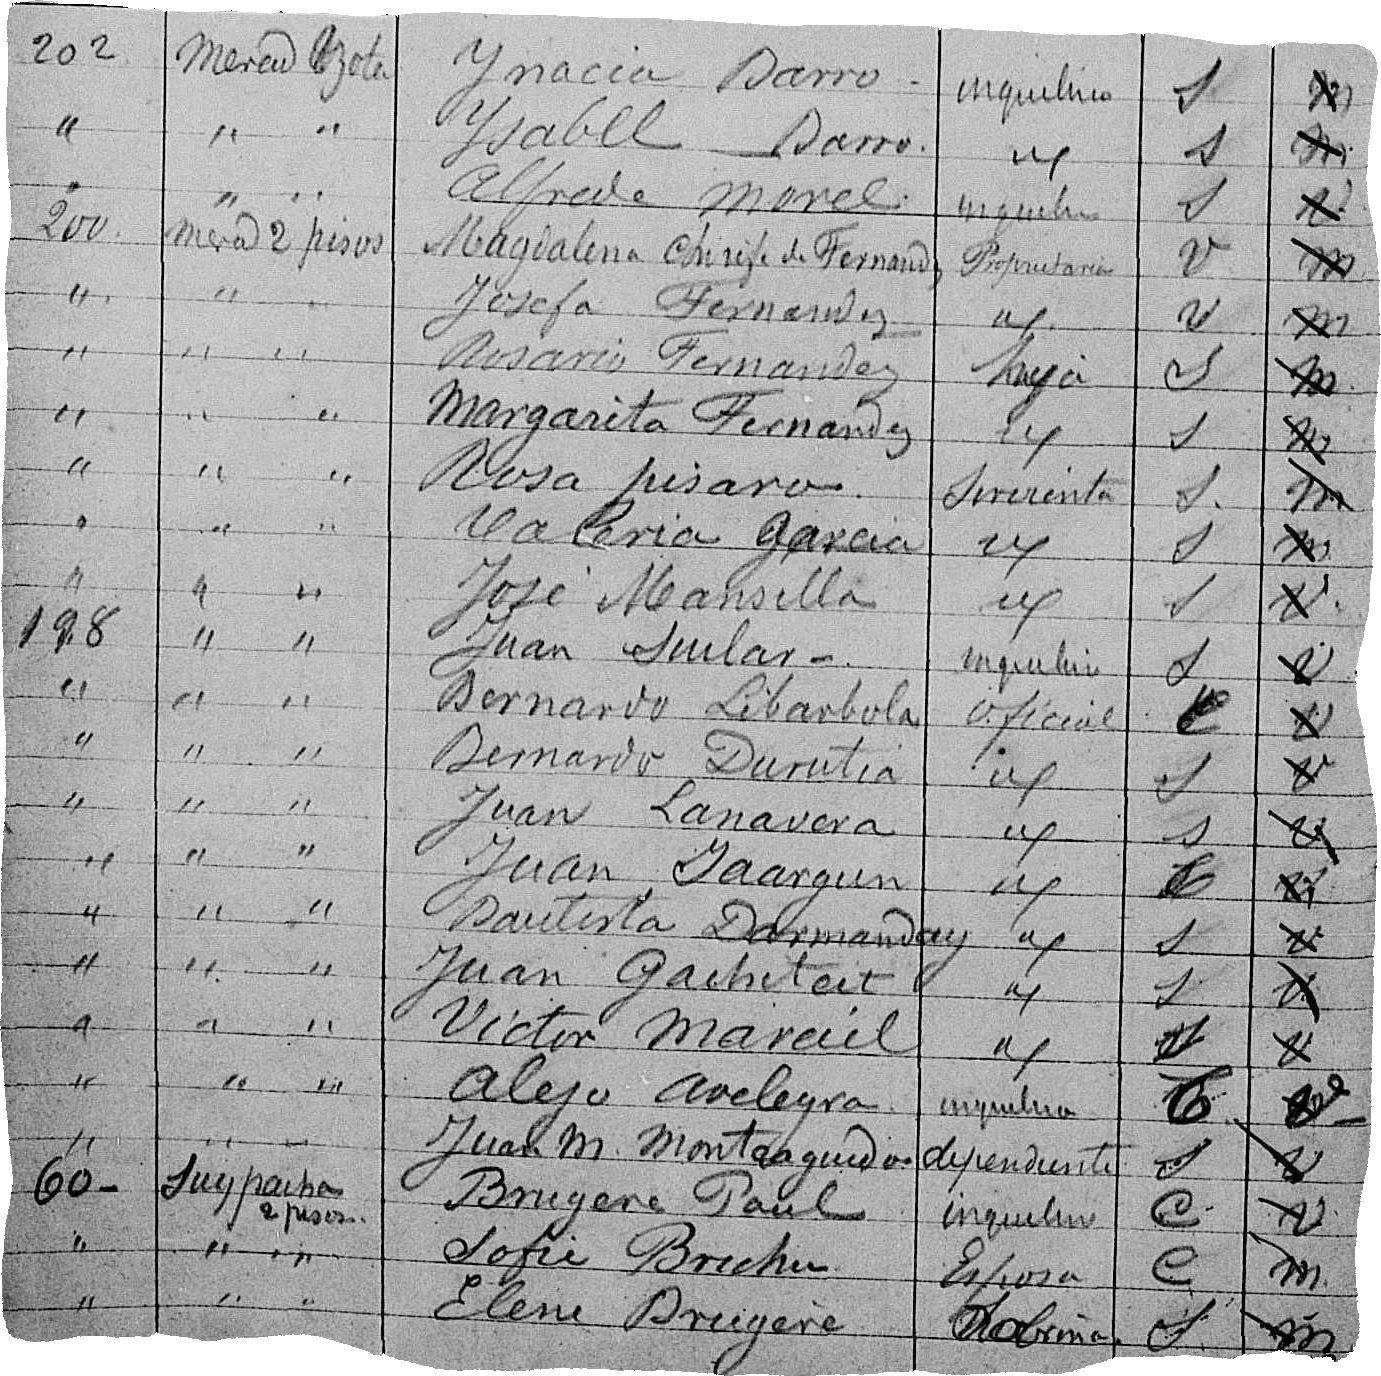 202 Merad Azota Ynacia Barro - inquilino S m
" " " Ysabel Barro. " S m
" " " Alfrede Morel inquilin S V
200. Merad 2 pisos Magdalena Chirife de Fernandz Propietaria V m
" " " Josefa Fernandez " V m
" " " Rosario Fernandez hija S m
" " " Margarita Fernandez " S m
" " " Rosa pisaro. Sirvienta S. m
" " " Valeria Garcia " S m
" " " José Mansilla " S V
198 " " Juan Sular - inquilin S V
" " " Bernardo Libarbola Oficial C V
" " " Bernardo Durutia " S V
" " " Juan Lanavera " S V
" " " Juan Jaargun " C V
" " " Bautista Darmanday " S V
" " " Juan Gachiteit " S V
" " " Victor Marcil " V
" " " Alejo Aveleyra inquilino C V
" " " Juan M. Monteagudo. dependiente S V
60 - Suypacha 2 pisos. Brugere Paul inquilino C V
" " " Sofie Esposa C m
" " " Elene Brugère Sobrina. S. m